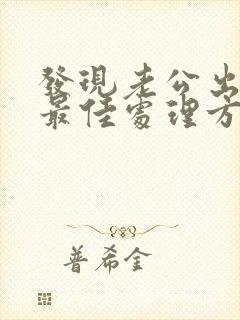 發現老公出
最佳處理方
普希金